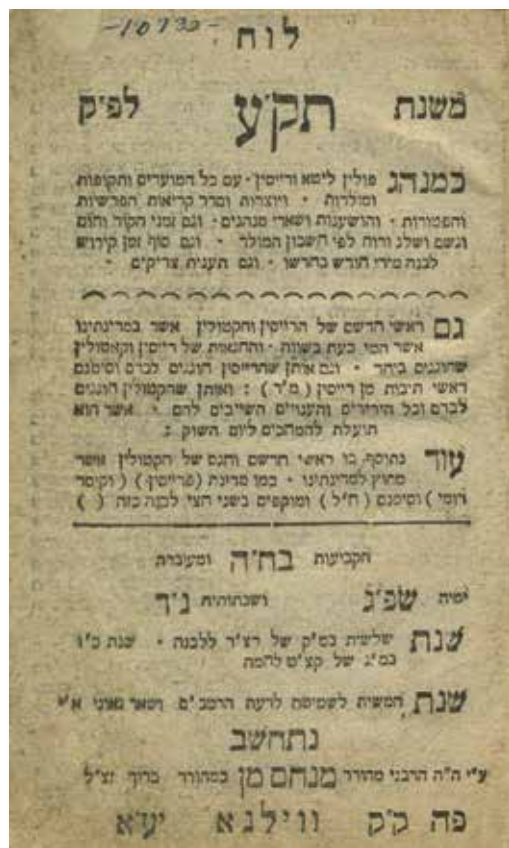 לוח
משנת תק״ע לפ״ק
כמנהג פולין ליטא ורייסין · עם כל המועדים ותקופות
ומולדות · ויוצרות וסדר קריאות הפרשיות
והפטורות · והושענות ושארי מנהגים · וגם זמני הקור והחום
וגשם ושלג ורוח לפי חשבון המולד · וגם סוף זמן קידוש
לבנה מידי חודש בחדשו · וגם תענית צדיקים ·
גם ראשי חדשם של הרייסין והקטולין אשר במדינתינו
אשר המה כעת בשווה · והחגאות של רייסין וקאטולין
שחוגגים ביחד · וגם אותן שהרייסין חוגגים לבדם וסימנם
ראשי תיבות מן רייסין ( מ״ר ) : ואותן שהקטולין חוגגים
לבדם וכל הירידים והענוים השייכים להם · אשר הוא
תועלת להמחכים ליום השוק :
עוד נתוסף בו ראשי חדשם וחגם של הקטולין אשר
מחוץ למדינתינו · כמו מדינת (פרייסין) ( וקיסר
רומי ) וסימנם ( ח״ל ) ומוקפים בשני חצי לבנה כזה ( )
הקביעות בח״ה ומעוברת
ימיה שפ״ג ושבתותיה נ״ך
שנת שלישית במ״ק של רצ״ר ללבנה · שנת כ״ו
במ״ג של קצ״ט לחמה
שנת חמשית לשמיטה לדעת הרמב״ם ושאר גאוני א״י
נתחשב
ע״י ה״ה הרבני מהורר מנחם מן במהורר ברוך זצ״ל
פה ק״ק ווילנא יע״א